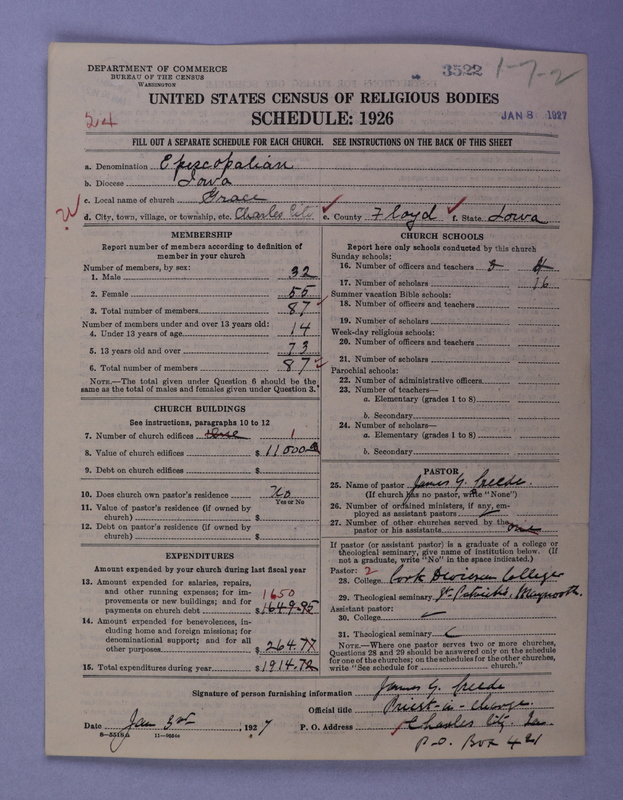 DEPARTMENT OF COMMERCE
BUREAU OF THE CENSUS
WASHINGTON
3522
1-7-2
UNITED STATES CENSUS OF RELIGIOUS BODIES
SCHEDULE: 1926
JAN 8 1927
24
FILL OUT A SEPARATE SCHEDULE FOR EACH CHURCH. SEE INSTRUCTIONS ON THE BACK OF THIS SHEET
a. Denomination Episcopalian
b. Diocese Iowa
c. Local name of church Grace
d. City, town, village, or township, etc. Charles City e. County Floyd f. State Iowa
MEMBERSHIP
Report number of members according to definition of
member in your church
Number of members, by sex:
1. Male 32
2. Female 55
3. Total number of members 87
Number of members under and over 13 years old:
4. Under 13 years of age 14
5. 13 years old and over 73
6. Total number of members 87
NOTE.—The total given under Question 6 should be the
same as the total of males and females given under Question 3.
CHURCH BUILDINGS
See instructions, paragraphs 10 to 12
7. Number of church edifices One 1
8. Value of church edifices $11000
9. Debt on church edifices $
10. Does church own pastor's residence No
Yes or No
11. Value of pastor's residence (if owned by
church) $
12. Debt on pastor's residence (if owned by
church) $
EXPENDITURES
Amount expended by your church during last fiscal
year
13. Amount expended for salaries, repairs,
and other running expenses; for im-
provements or new buildings; and for
payments on church debt $1649.95
1650
14. Amount expended for benevolences, in-
cluding home and foreign missions; for
denominational support; and for all
other purposes $264.77
15. Total expenditures during year $1914.72
CHURCH SCHOOLS
Report here only schools conducted by this church
Sunday schools:
16. Number of officers and teachers 3
17. Number of scholars 16
Summer vacation Bible schools:
18. Number of officers and teachers
19. Number of scholars
Week-day religious schools:
20. Number of officers and teachers
21. Number of scholars
Parochial schools:
22. Number of administrative officers
23. Number of teachers—
a. Elementary (grades 1 to 8)
b. Secondary
24. Number of scholars—
a. Elementary (grades 1 to 8)
b. Secondary
PASTOR
25. Name of pastor James G.
(If church has no pastor, write "None")
26. Number of ordained ministers, if any, em-
ployed as assistant pastors
27. Number of other churches served by the
pastor or his assistants one
If pastor (or assistant pastor) is a graduate of a college or
theological seminary, give name of institution below. (If
not a graduate, write "No" in the space indicated.)
Pastor: 2
28. College Cork Diocesan College
29. Theological seminary St Patricks, Maynooth.
Assistant pastor:
30. College
31. Theological seminary
NOTE.—Where one pastor serves two or more churches,
Questions 28 and 29 should be answered only on the schedule
for one of the churches; on the schedules for the other churches,
write "See schedule for church."
Signature of person furnishing information James G.
Official title Priest-in-charge.
Date Jan 3rd, 1927 P. O. Address Charles City, Ia.
8—5518A 11—9664a
P.O. Box 421